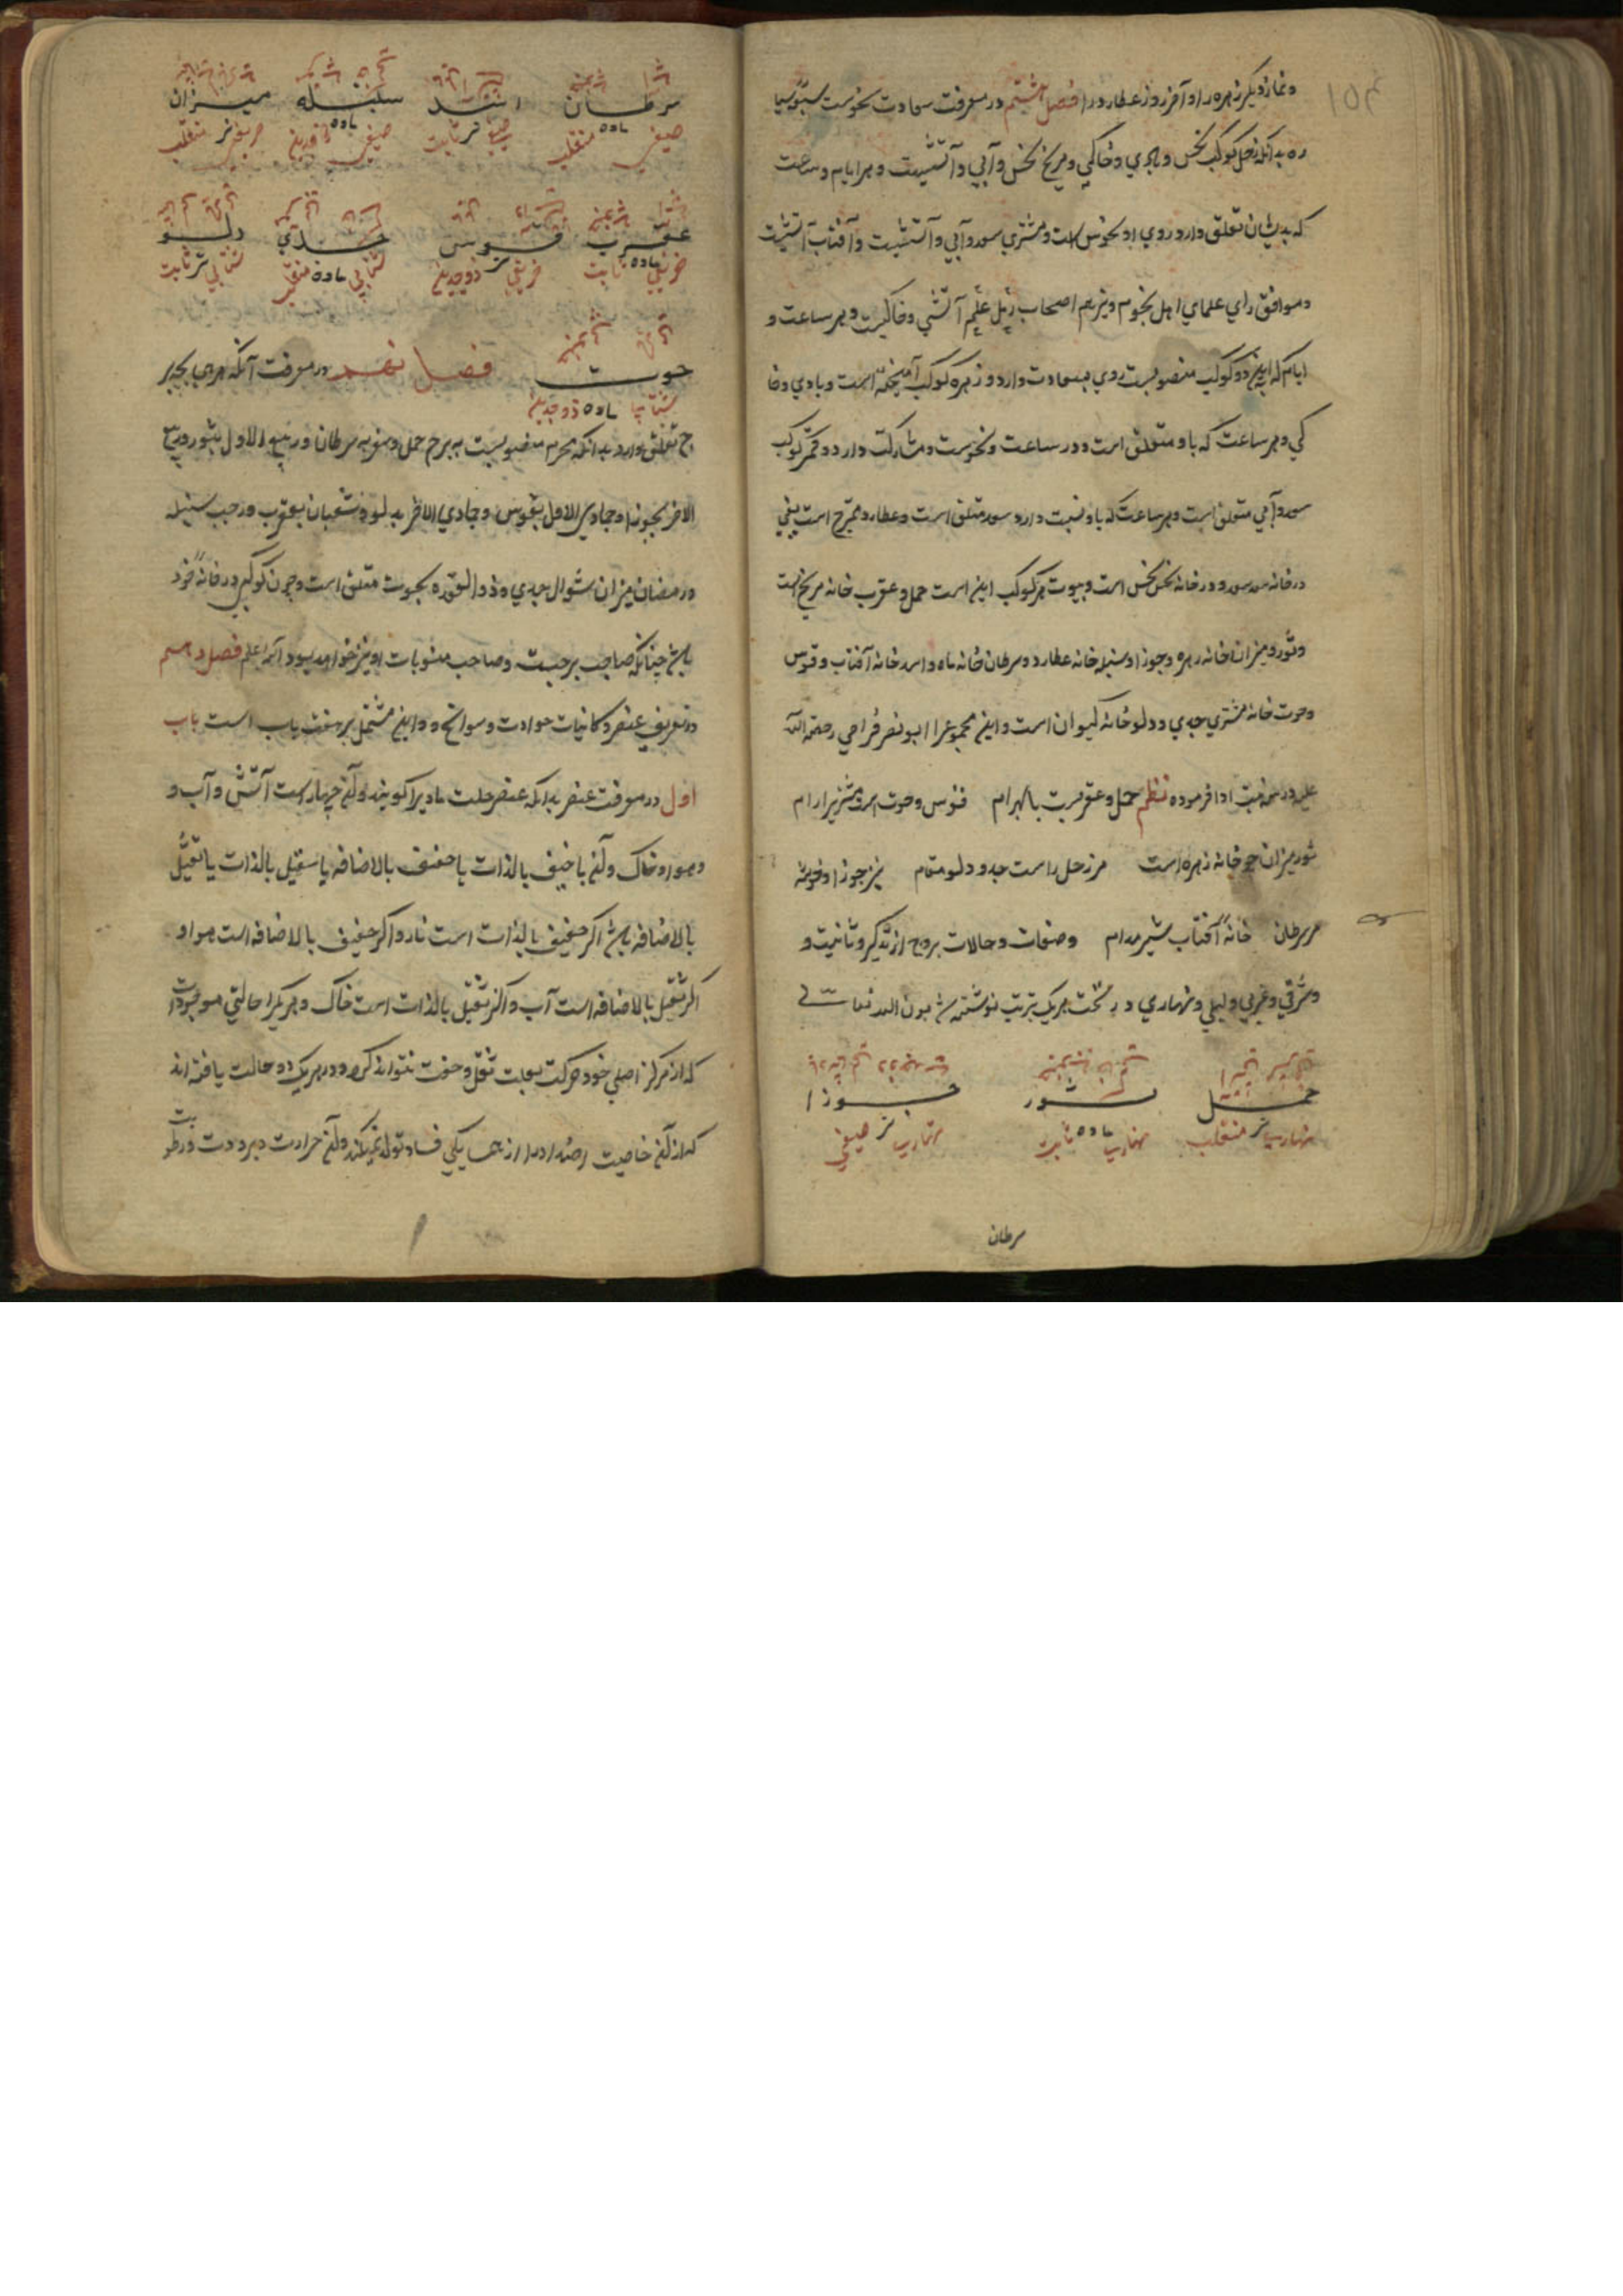 و نماز دیگر زهره را و آخر روز عطارد را فصل هشتم در معرفت سعادت نحوست سبعه سیا
ره بدانکه زحل کوکب نحس و بادی و خاکی و مریخ نحس و آبی و آتشیست و هر ایام و ساعت
که بدیشان تعلق دارد روی او بنحوس است و مشتری سعد و آبی و آتشیست و آفتاب آتشیست
و موافق رای علمای اهل نجوم و نیز هم اصحاب رمل علم آتشی و خاکیست و هر ساعت و
ایام که این دو کوکب منصوبست روی بسعادت دارد و زهره کوکب آمیخته است و بادی و خا
کی و هر ساعت که باو متعلق است و در ساعت و نحوست و مشارکت دارد و قمر کوکب
سعد و آبی متعلق است و هر ساعت که باو نسبت دارد سعد متعلق است و عطارد ممتزج است یعنی
در خانه سعد سعد و در خانه نحس نحس است و بیوت هر کوکب این است حمل و عقرب خانه مریخ است
و ثور و میزان خانه زهره و جوزا و سنبله خانه عطارد و سرطان خانه ماه و اسد خانه آفتاب و قوس
و حوت خانه مشتری جدی و دلو خانه کیوان است و این مجموع را ابو نصر فراهی رحمة الله
علیه در سه بیت ادا فرموده نظم حمل و عقربست با بهرام قوس و حوت است مشتریرا رام
ثور میزان چو خانه زهره است مر زحل راست جدی و دلو مقام نیز جوزا و خوشه
مر سرطان خانهٔ آفتاب شیر مدام و صفات و حالات بروج از تذکیر و تانیث و
و شرقی و غربی و لیلی و نهاری در تحت هریک بترتیب نوشته شد بعون الله تعالی
حمل ثور جوزا
بهاری نر منقلب بهاری ماده ثابت بهاری نر صیفی
سرطان
سرطان اسد سنبله میزان
صیفی ماده منقلب صیفی نر ثابت صیفی ماده خریفی نر منقلب
عقرب قوس جدی دلو
خریفی ماده ثابت خریفی نر ذوجدین شتایی ماده منقلب شتایی نر ثابت
حوت فصل نهم در معرفت آنکه هر ماهی بچه بر
شتایی ماده ذوجدین
ج تعلق دارد بدانکه محرم منصوبست به برج حمل و صفر به سرطان و ربیع الاول بثور و ربیع
الاخر بجوزا و جمادی الاول بقوس و جمادی الاخر بدلو و شعبان بعقرب و رجب سنبله
و رمضان میزان شوال جدی و ذوالقعده بحوت متعلق است و چون کوکبی در خانهٔ خود
باشد چنانکه صاحب برجست و صاحب منسوبات او نیز خواهد بود الله اعلم فصل دهم
در تعریف عنصر و کائنات حوادث و سوانح و این مشتمل بر هفت باب است باب
اول در معرفت عنصر بدانکه عنصر علت مادیرا گویند و آن چهار است آتش و آب و
و هوا و خاک و آن یا خفیف بالذات یا خفیف بالاضافه یا سقیل بالذات یا ثقیل
بالاضافه باشد اگر خفیف بالذات است نار و اگر خفیف بالاضافه است هوا و
اگر ثقیل بالاضافه است آب و اگر ثقیل بالذات است خاک و هر یکرا حالتی موجودست
که از مرکز اصلی خود حرکت بعلت ثقل و خفت نتواند کرد و در هریک دو حالت یافته اند
که از آن خاصیت از یکی فساد تولد میکند و آن حرارت و برودت و رطوبت